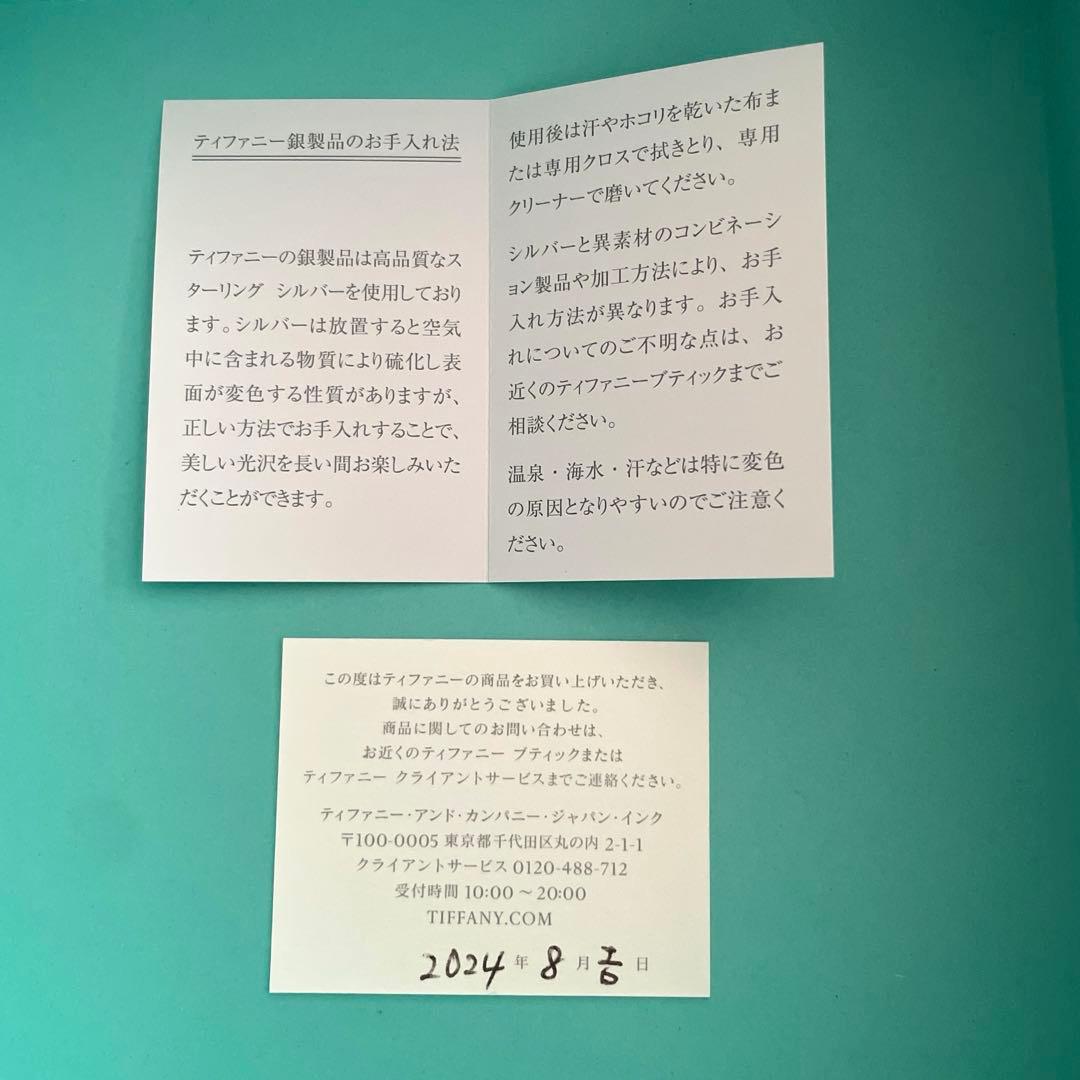 ティファニー銀製品のお手入れ法
ティファニーの銀製品は高品質なス
ターリング シルバーを使用しており
ます。シルバーは放置すると空気
中に含まれる物質により硫化し表
面が変色する性質がありますが、
正しい方法でお手入れすることで、
美しい光沢を長い間お楽しみいた
だくことができます。
使用後は汗やホコリを乾いた布ま
たは専用クロスで拭きとり、専用
クリーナーで磨いてください。
シルバーと異素材のコンビネーシ
ョン製品や加工方法により、お手
入れ方法が異なります。お手入
れについてのご不明な点は、お
近くのティファニーブティックまでご
相談ください。
温泉・海水・汗などは特に変色
の原因となりやすいのでご注意く
ださい。
この度はティファニーの商品をお買い上げいただき、
誠にありがとうございました。
商品に関してのお問い合わせは、
お近くのティファニー ブティックまたは
ティファニー クライアントサービスまでご連絡ください。
ティファニー・アンド・カンパニー・ジャパン・インク
〒100-0005 東京都千代田区丸の内 2-1-1
クライアントサービス 0120-488-712
受付時間 10:00 ～ 20:00
TIFFANY.COM
2024 年 8 月 吉 日